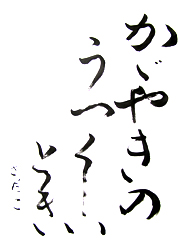 かゞやきの
うつくしい
ときい